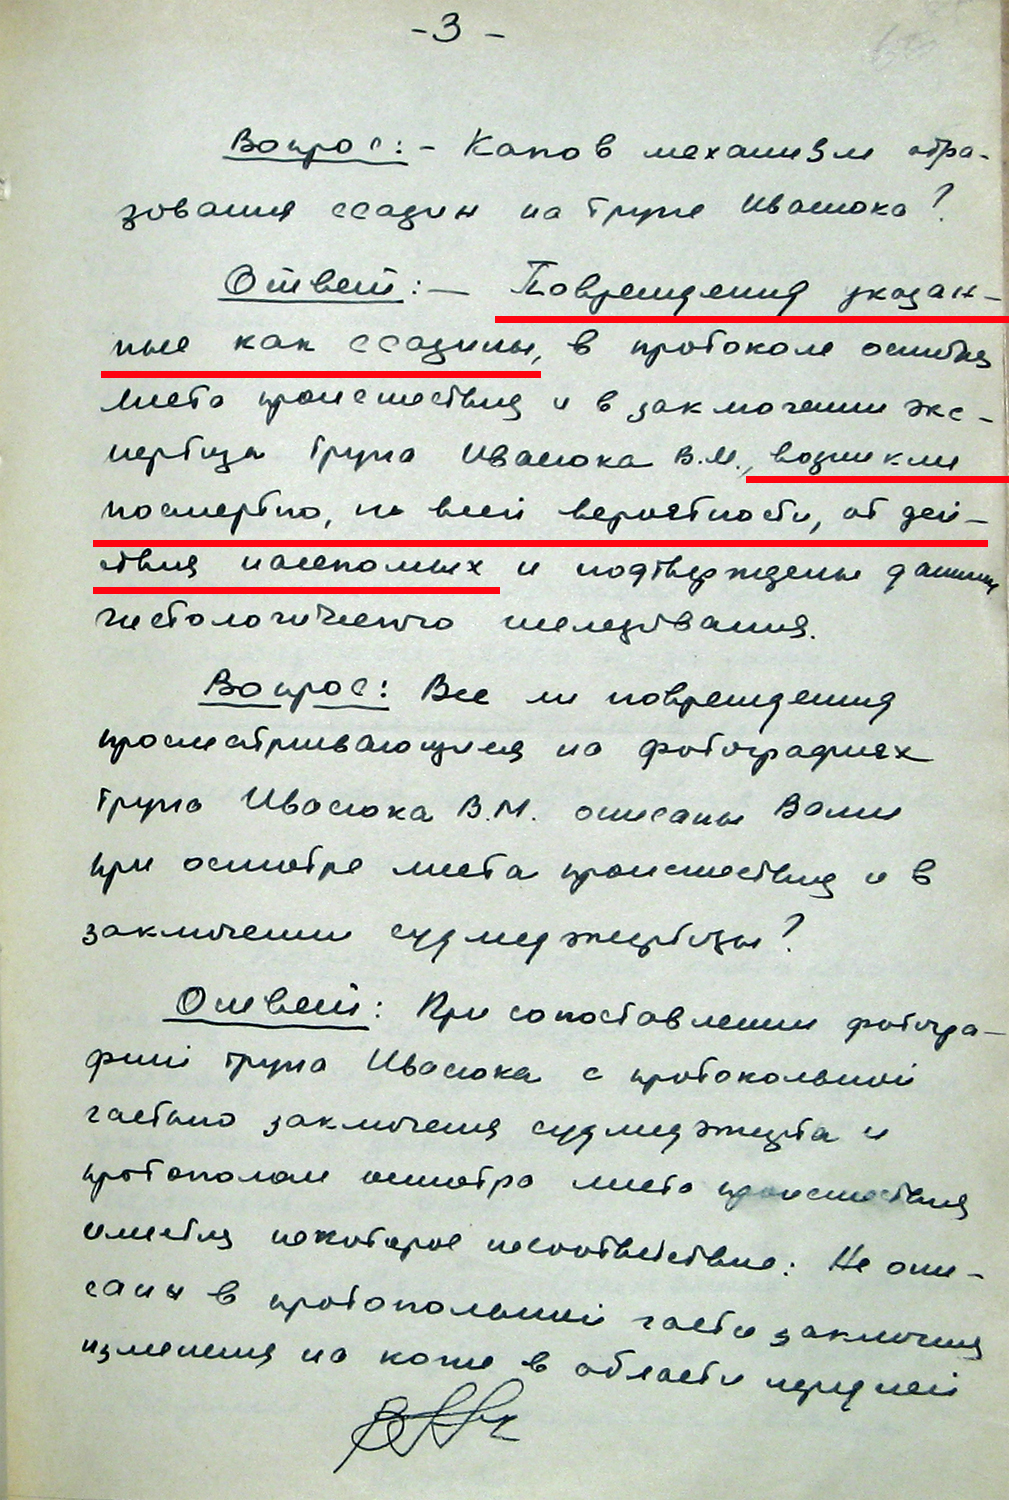 -3-
Вопрос: - Каков механизм обра-
зования ссадин на трупе Ивасюка?
Ответ: - Повреждения указан-
ные как ссадины, в протоколе осмотра
места происшествия и в заключении экс-
пертизы трупа Ивасюка В.М., возникли
посмертно, по всей вероятности, от дей-
ствия насекомых и подтверждены данными
гистологического исследования.
Вопрос: Все ли повреждения
просматривающиеся на фотографиях
трупа Ивасюка В.М. описаны Вами
при осмотре места происшествия и в
заключении судмедэкспертизы?
Ответ: При сопоставлении фотогра-
фий трупа Ивасюка с протокольной
частью заключения судмедэксперта и
протоколом осмотра места происшествия
имеется некоторое несоответствие: Не опи-
саны в протокольной части заключения
изменения на коже в области передней